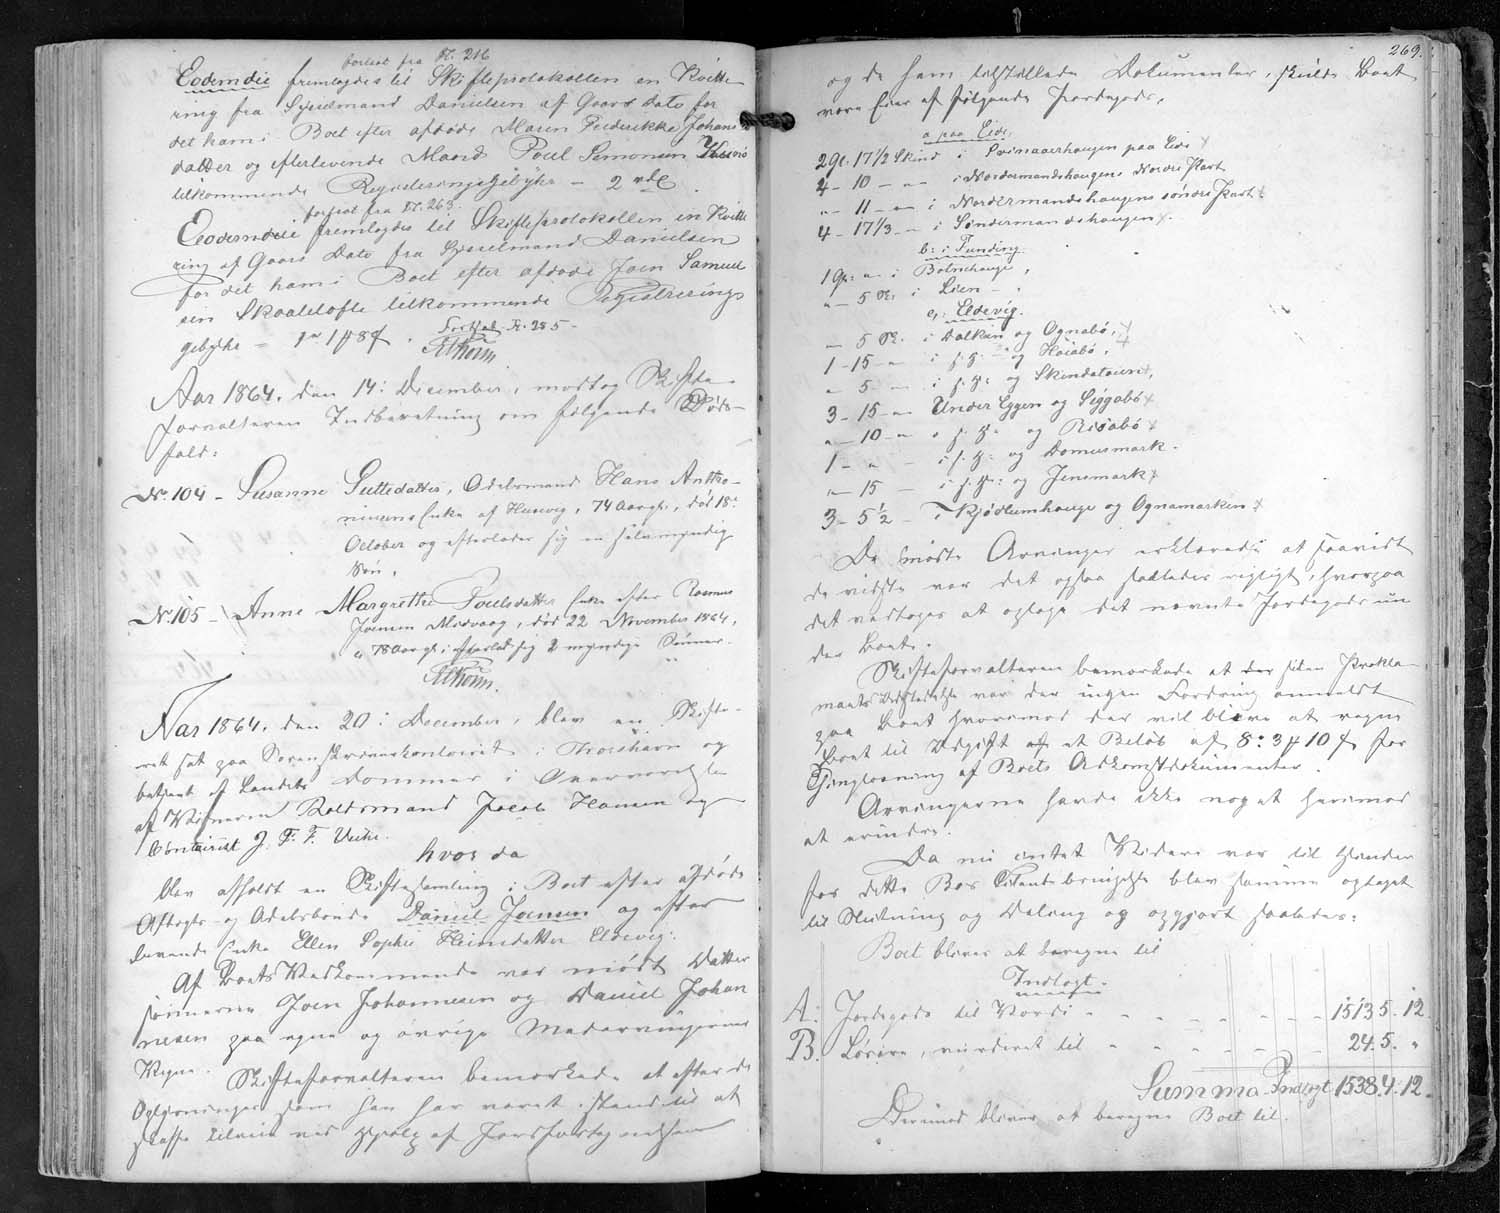 fortsat fra F. 216
Eodem die fremlagdes til Skifteprotokollen en Kvitte-
ring fra Sysselmand Danielsen af Gaars dato for
det ham i Boet efter afdøde Maren Frederikke Johans
datter og efterlevende Mand Poul Simonsen
tilkommende Registreringsgebyhr - 2 rdl.
fortsat fra F. 263
Eodem die fremlagdes til Skifteprotokollen en Kvitte
ring af Gaars Dato fra Sysselmand Danielsen
for det ham i Boet efter afdøde Joen Samuel
sen Skaalelofte tilkommende Registrerings
gebyhr - 1 rd 1 # 8 f. Forts. F. 285 -
Aar 1864, den 14: December, modtog Skifte-
forvalteren Indberetning om følgende Døds-
fald:
No. 104 - Susanne Guttesdatter, Odelsmand Hans Antho-
niusens Enke af Husevig, 74 Aar gl., død 18:
October og efterlader sig en selvmyndig
Søn,
No. 105 - Anne Margrethe Poulsdatter Enke efter Rasmus
Joensen Midvaag, død 22 November 1864,
78 Aar gl: efterlod sig 2 myndige Sønner.
Aar 1864, den 20: December, blev en Skifte-
ret sat paa Sorenskriverkontoiret i Thorshavn og
betjent af Landets Dommer i Overværelse
af Vidnerne Raadsmand Jacob Hansen og
Contoirist J. F. F.
hvor da
blev afholdt en Skiftesamling i Boet efter afdøde
Aftægts- og Odelsbonde Daniel Joensen og efter
levende Enke Ellen Sophie Heinesdatter Eldevig:
Af Boets Vedkommende var mødt Datter
sønnerne Joen Johannesen og Daniel Johan
nesen paa egne og øvrige Medarvingernes
Vegne.
Skifteforvalteren bemærkede at efter de
Oplysninger som han har været istand til at
skaffe tilveie ved Hjelp af Jordfortegnelsen
269.
og de ham tilstillede Dokumenter, skulde Boet
være Eier af følgende Jordegods,
a paa Eide,
2 Gl. 17½ Skind i Svinaaerhaugen paa Eide
4 - 10 - " - i Nordermandshaugens Nordre Part
" - 11 - " - i Nordermandshaugens søndre Part
4 - 17⅓ - " - i Søndermandshaugen
b: i Funding.
1 Gl: " - i Bolnehauge,
" - 5 Sk. i Lien - ,
c,: Eldevig.
" - 5 Sk. i Dalken og Ognabø,
1 - 15 - " - i f. H: og Høiabø,
" - 5 - " - i f. H: og Skindatoien,
3 - 15 - " - Under Eggen og Siggabø
" - 10 - " - i f. H: og Risabø
1 - " - i f. H: og Domusmark.
" - 15 - i f. H: og Jensmark
3 - 5½ - i Kjødlumhauge og Ognamarken
De mødte Arvinger erklærede at saavidt
de vidste var det opsaa saaledes rigtigt, hvorpaa
det vedtoges at optage det nævnte Jordegods un
der Boet.
Skifteforvalteren bemærkede at der siden Prokla-
mants Udstedelse var der ingen Fordring anmeldt
paa Boet hvorimod der vil blive at regne
Boet til Udgift et Beløb af 8: 3 # 10 f for
Thinglæsning af Boets Adkomstdokumenter.
Arvingerne havde ikke noget herimod
at erindre.
Da nu intet Videre var til Hinder
for dette Boes Behandling blev samme optaget
til Slutning og Deling og opgjort saaledes:
Boet bliver at beregne til
Indtægt.
A: Jordegods til Værdi - - - - - - - 1513. 5. 12.
B. Løsøre, vurderet til - - - - - - 24. 5. "
Summa Indtægt 1538. 4. 12.
Derimod bliver at beregne Boet til.